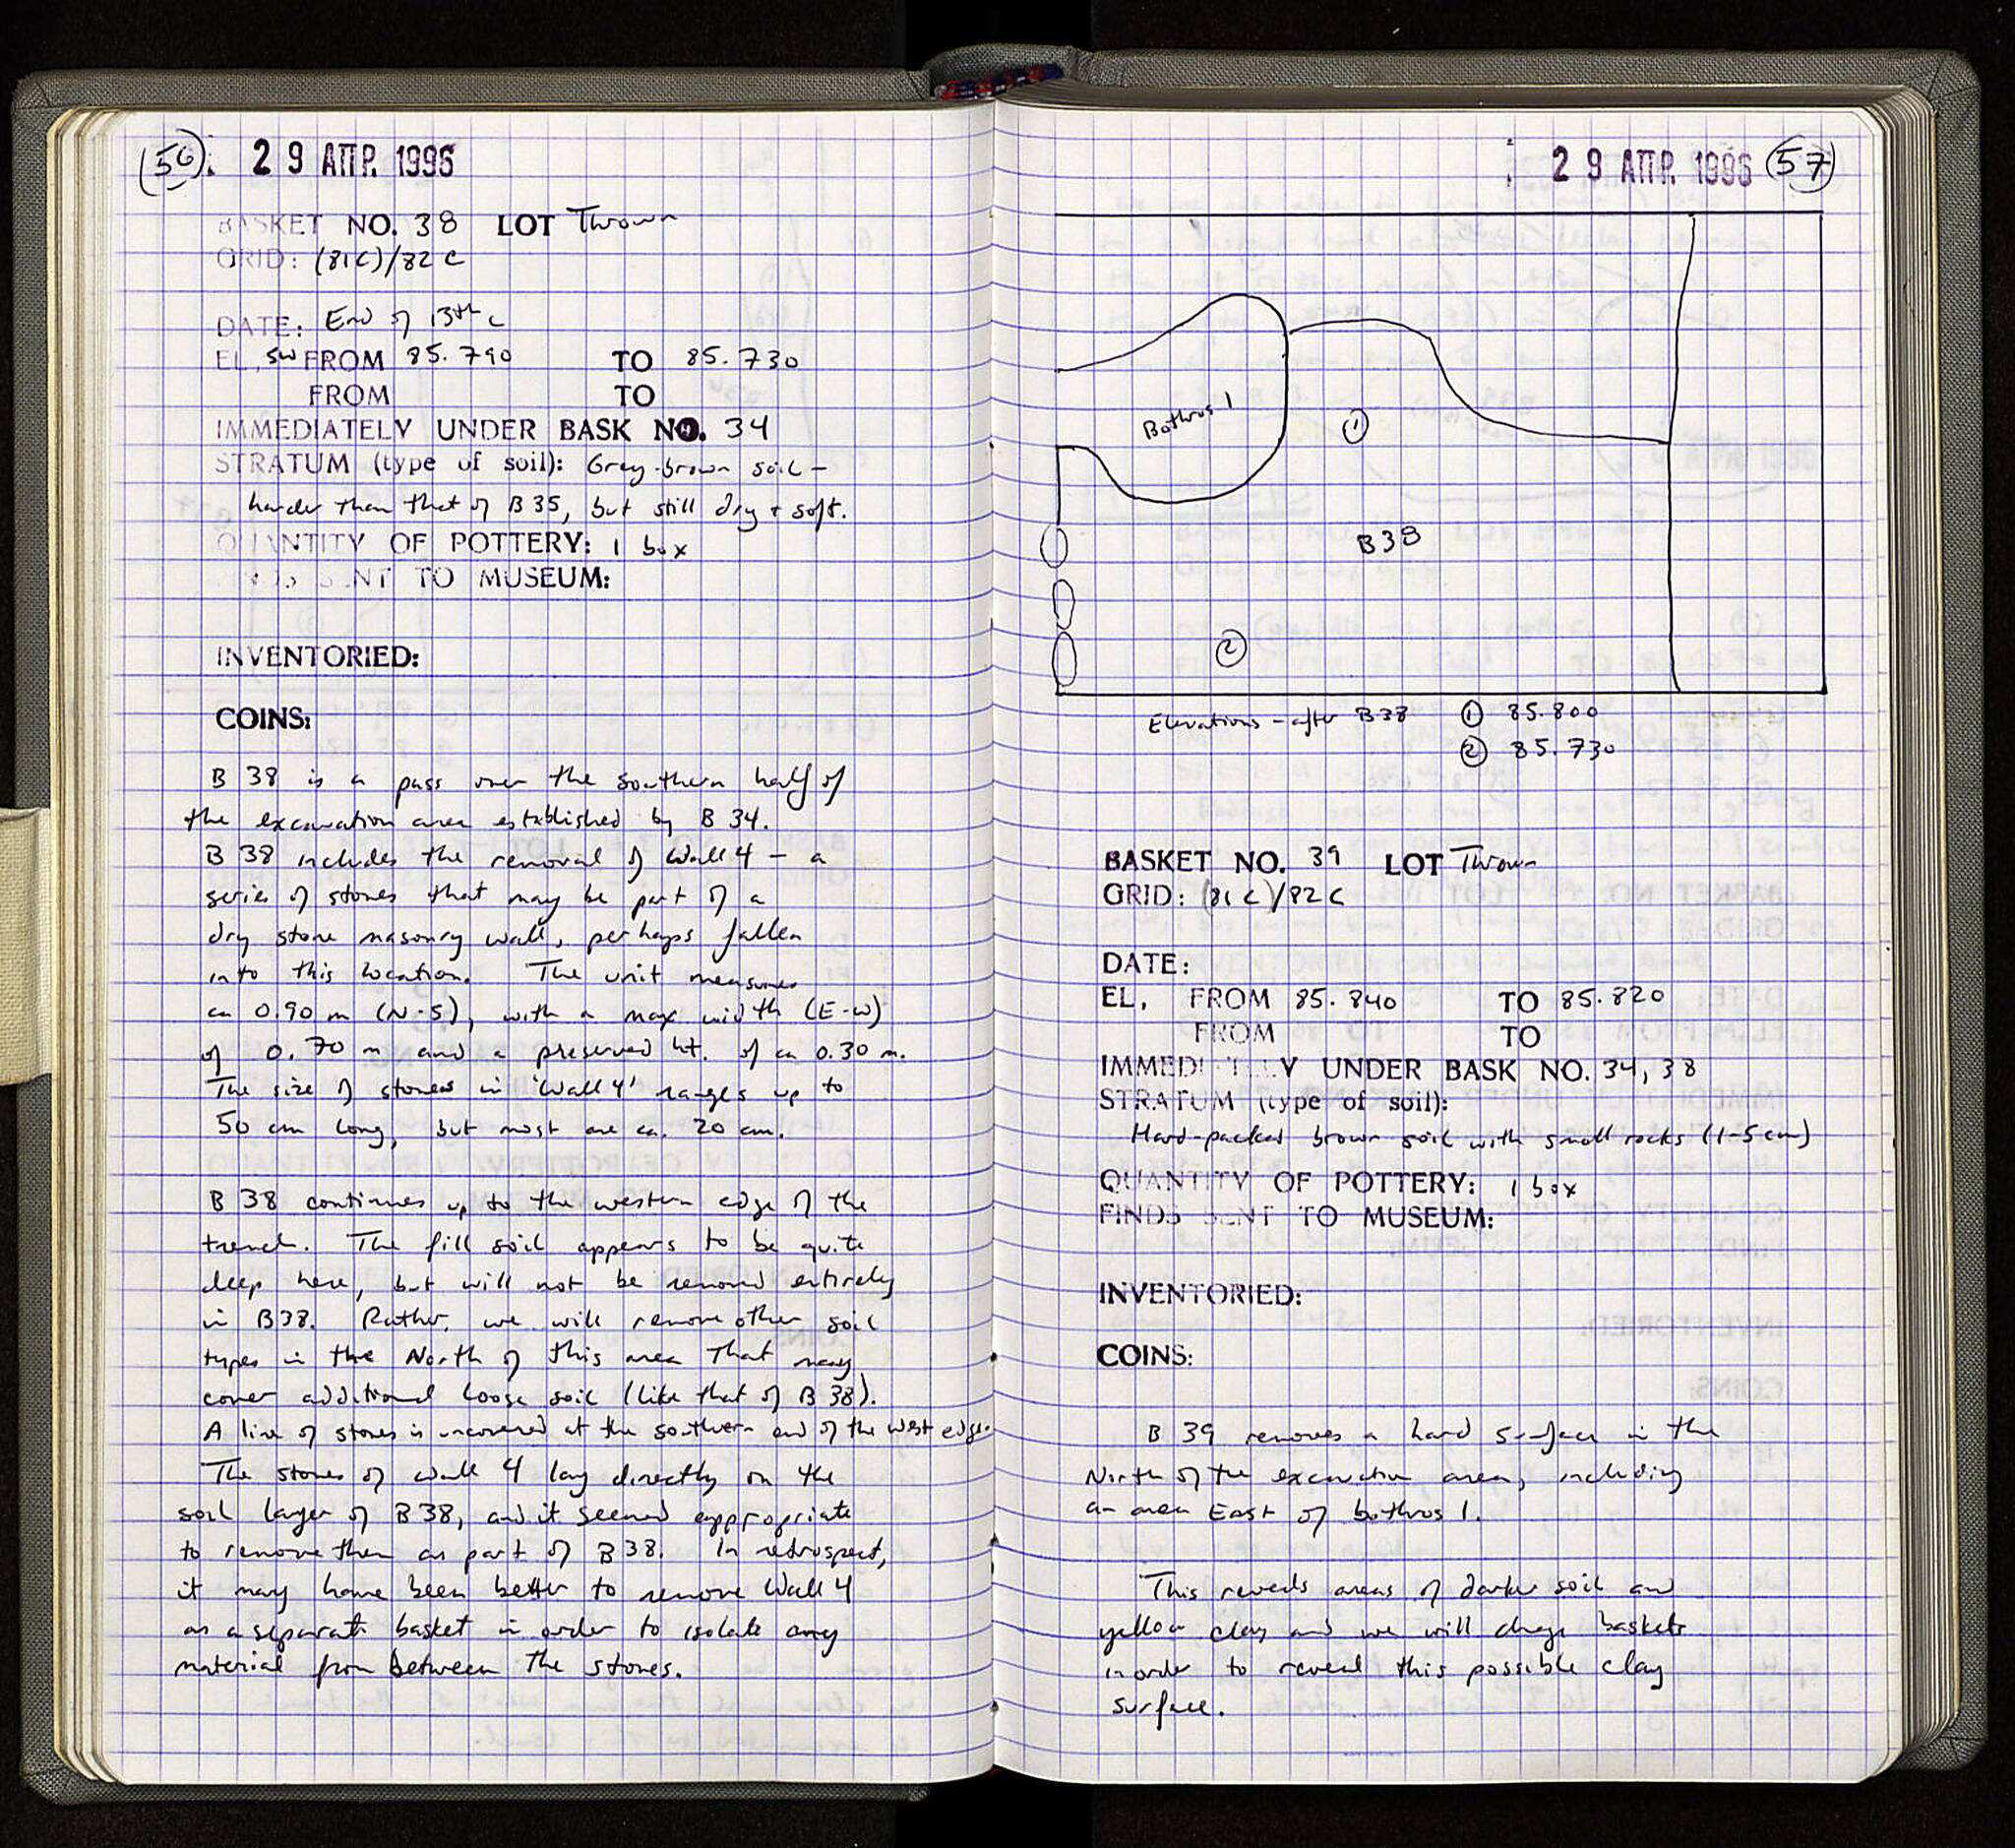 (56). 29 ΑΠΡ. 1996
BASKET NO. 38 LOT Thrown
GRID: (81C)/82C
DATE: End of 13th c
EL, SW FROM 85.790 TO 85.730
FROM TO
IMMEDIATELY UNDER BASK NO. 34
STRATUM (type of soil): Grey-brown soil –
harder than that of B35, but still dry + soft.
QUANTITY OF POTTERY: 1 box
FINDS SENT TO MUSEUM:
INVENTORIED:
COINS:
B 38 is a pass over the southern half of
the excavation area established by B 34.
B 38 includes the removal of Wall 4 – a
series of stones that may be part of a
dry stone masonry wall, perhaps fallen
into this location. The unit measures
ca 0.90 m (N-S), with a max width (E-W)
of 0.70 m and a preserved ht. of ca 0.30 m.
The size of stones in 'Wall 4' ranges up to
50 cm long, but most are ca. 20 cm.
B 38 continues up to the western edge of the
trench. The fill soil appears to be quite
deep here, but will not be removed entirely
in B38. Rather, we will remove other soil
types in the North of this area that may
cover additional loose soil (like that of B 38).
A line of stones is uncovered at the southern end of the west edge.
The stones of wall 4 lay directly on the
soil layer of B38, and it seemed appropriate
to remove them as part of B38. In retrospect,
it may have been better to remove Wall 4
as a separate basket in order to isolate any
material from between the stones.
29 ΑΠΡ. 1996 (57)
Bothros 1
①
B38
②
Elevations – after B38 ① 85.800
② 85.730
BASKET NO. 39 LOT Thrown
GRID: (81C)/82C
DATE:
EL, FROM 85.840 TO 85.820
FROM TO
IMMEDIATELY UNDER BASK NO. 34, 38
STRATUM (type of soil):
Hard-packed brown soil with small rocks (1-5 cm)
QUANTITY OF POTTERY: 1 box
FINDS SENT TO MUSEUM:
INVENTORIED:
COINS:
B 39 removes a hard surface in the
North of the excavation area, including
an area East of bothros 1.
This reveals areas of darker soil and
yellow clay and we will change baskets
in order to reveal this possible clay
surface.